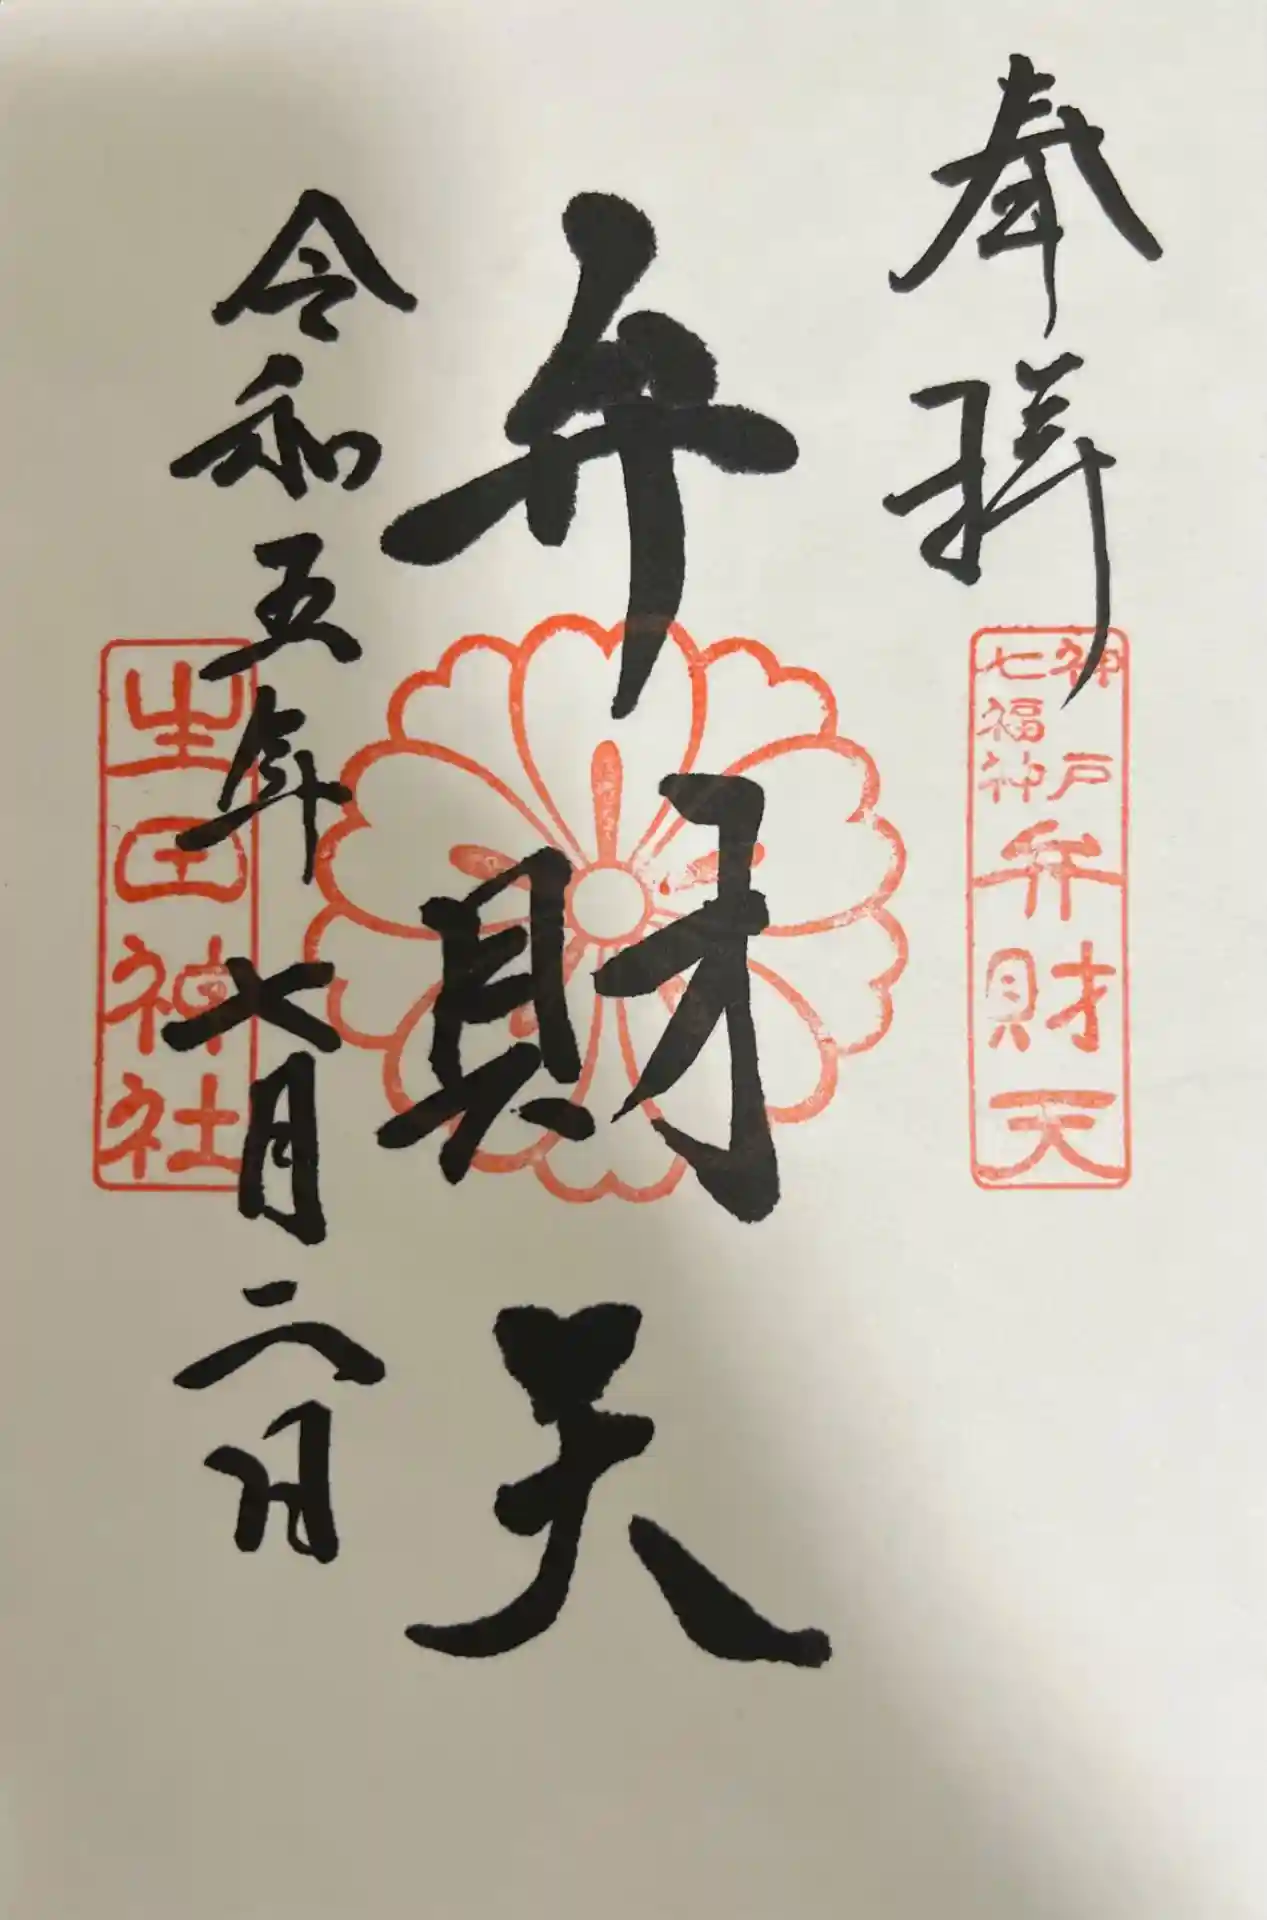 奉拝
神戸
七福神
弁財天
弁財天
令和五年七月二日
生田神社